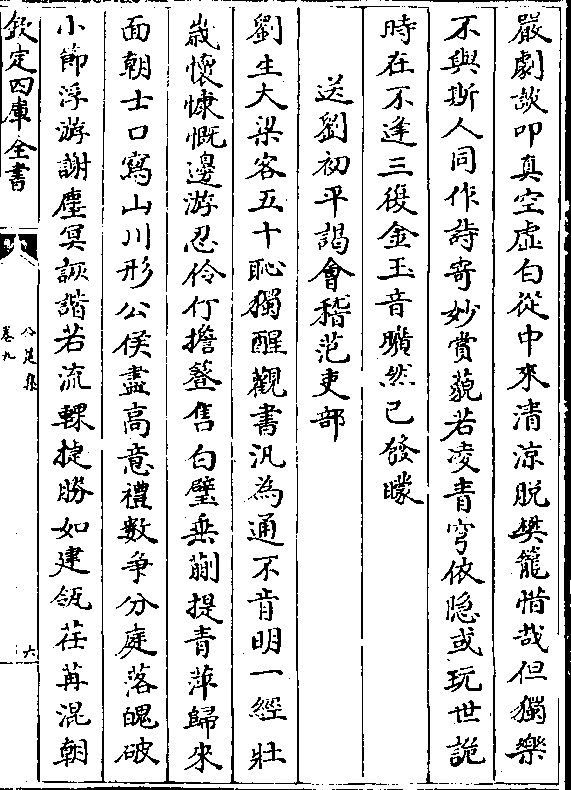 嚴劇談叩真空虛白從中來清涼脫樊籠惜哉但獨樂
不與斯人同作詩寄妙賞藐若凌青穹依隐或玩世詭
時在不逢三復金玉音曠然已發矇
送劉初平謁會稽范吏部
劉生大梁客五十恥獨醒觀書汎為通不肯明一經壯
嵗懷慷慨邊游忍伶仃擔簦售白璧垂蒯提青萍歸來
面朝士口寫山川形公侯盡高意禮數爭分庭落魄破
小節浮游謝塵冥詼諧若流輠捷勝如建瓴荏苒混朝
欽定四庫全書
公是集
卷九
六